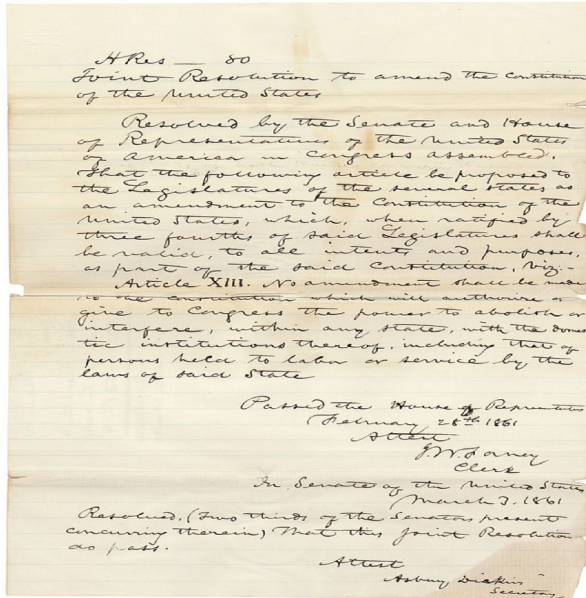 H Res — 80
Joint Resolution to amend the Constitution
of the United States
Resolved by the Senate and House
of Representatives of the United States
of America in Congress assembled,
That the following article be proposed to
the Legislatures of the several states as
an amendment to the Constitution of the
United States, which, when ratified by
three fourths of said Legislatures shall
be valid, to all intents and purposes,
as part of the said Constitution, viz:-
Article XIII. No amendment shall be made
to the Constitution which will authorize or
give to Congress the power to abolish or
interfere, within any state, with the domes
tic institutions thereof, including that of
persons held to labor or service by the
laws of said State
Passed the House of Representa
February 28th 1861
Attest
J.W. Forney
Clerk
In Senate of the United States
March 3. 1861
Resolved, (two thirds of the Senators present
concurring therein) That this Joint Resolution
do pass.
Attest
Asbury Dickins
Secretary